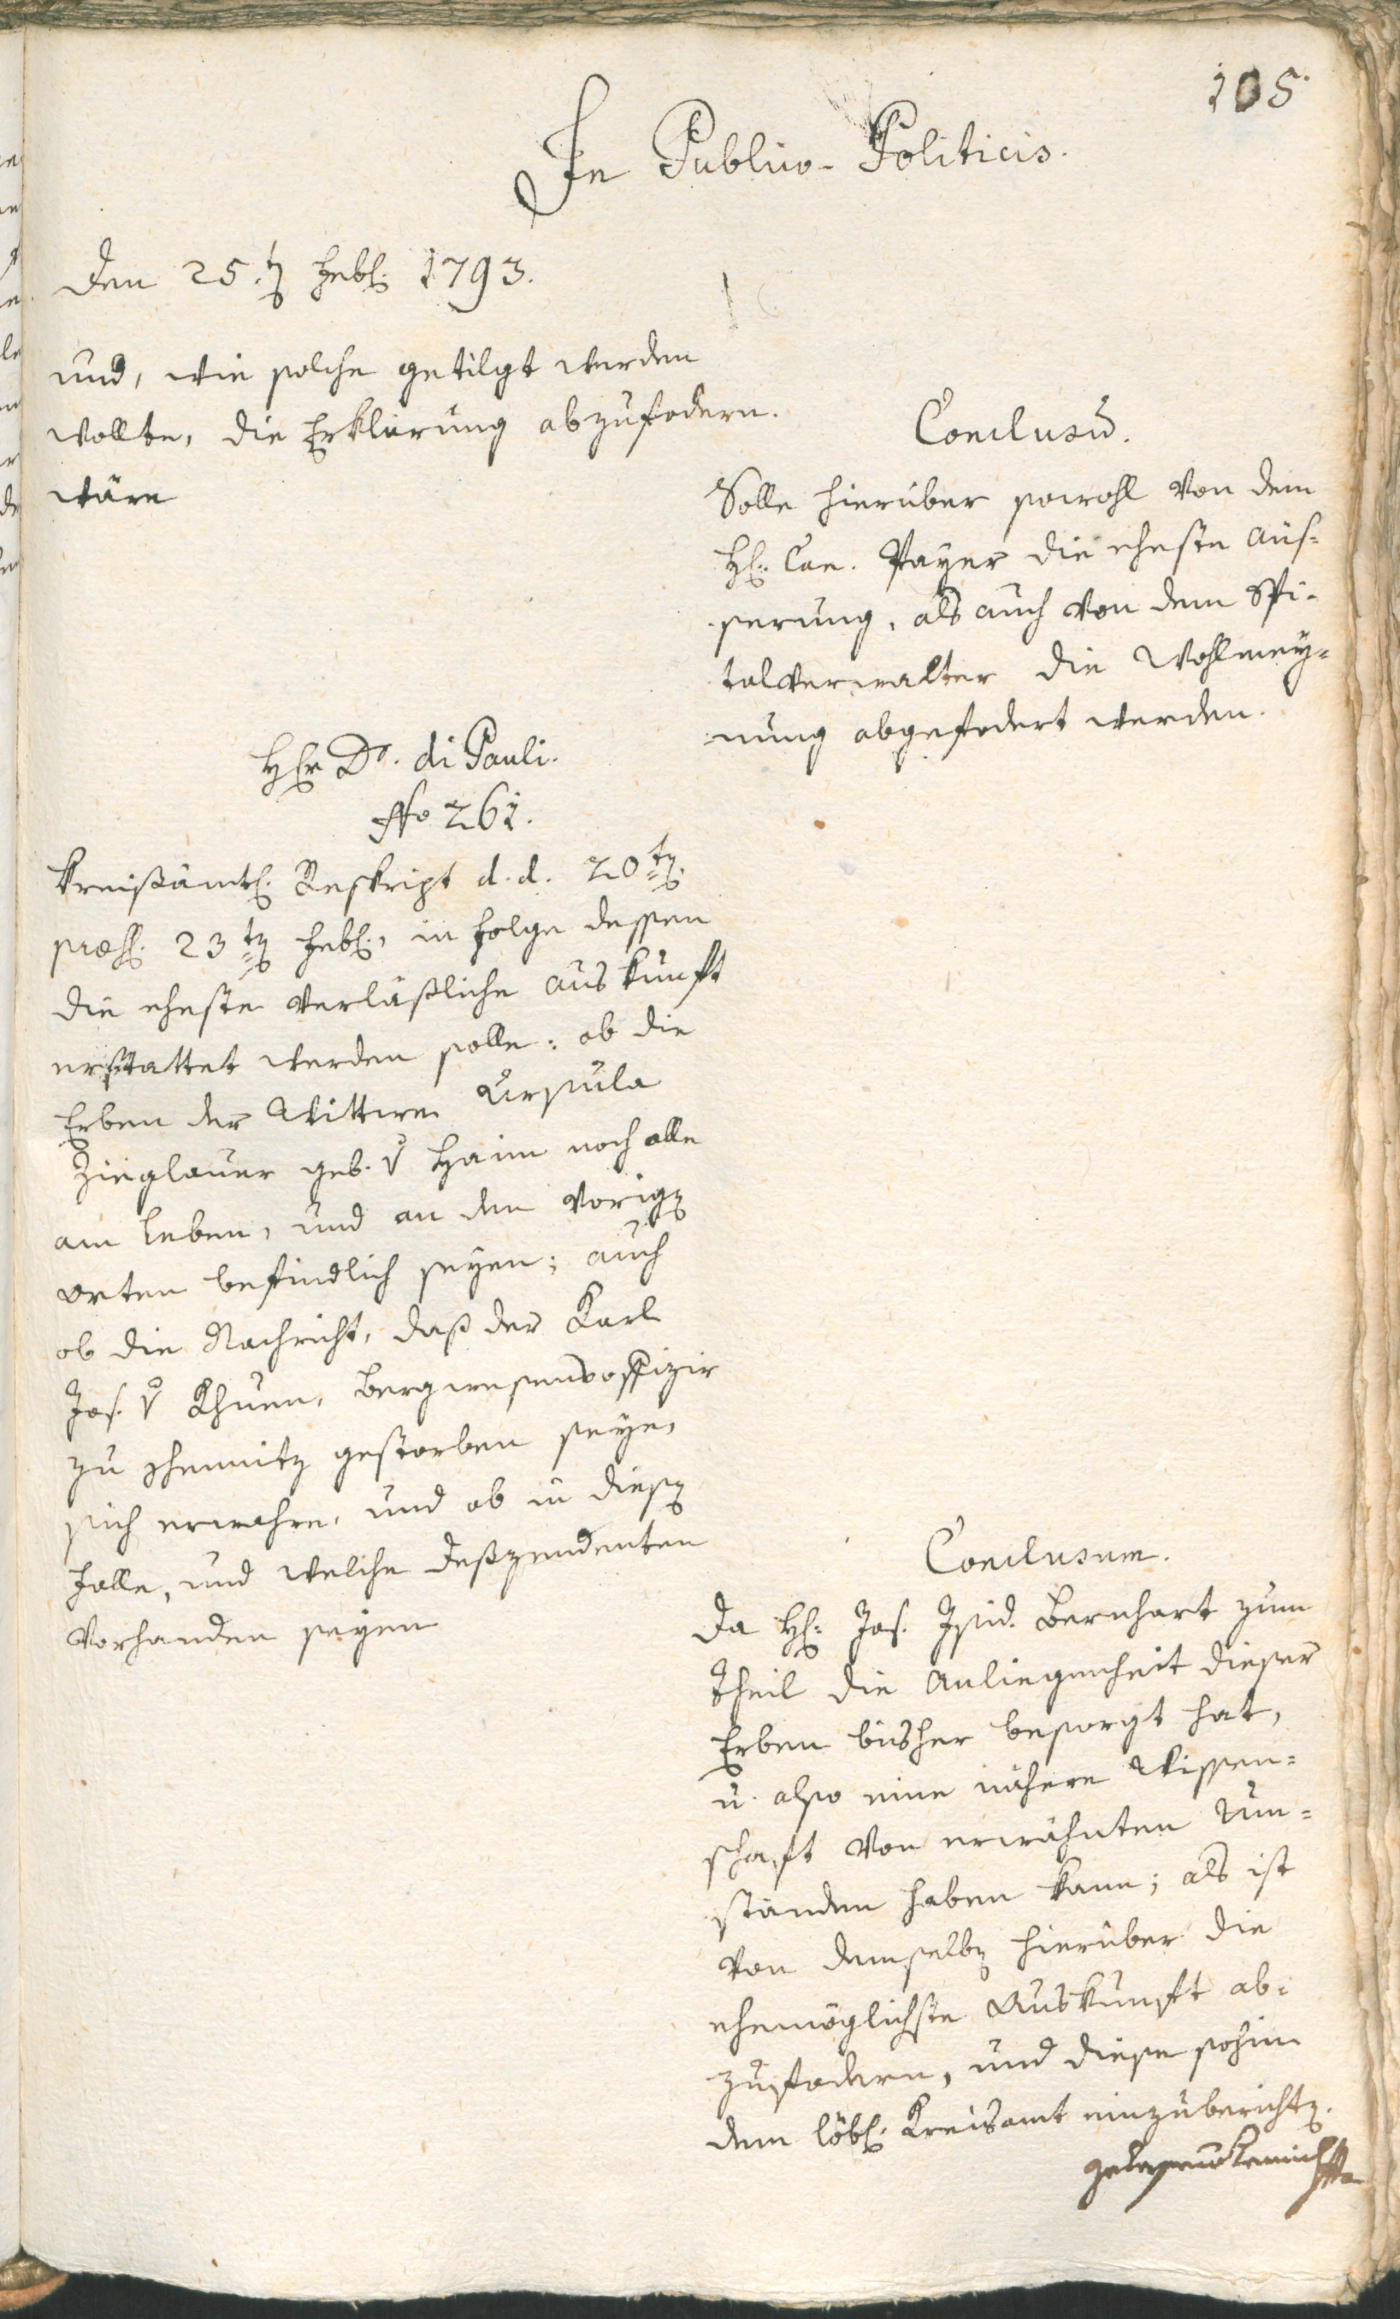 105.
In Publico-Politicis.
Den 25.t Febr. 1793.
und, wie solche getilgt werden
wollte, die Erklärung abzufodern.
wäre
Conclusū.
Solle hierüber sowohl von dem
H: Can. Payer die eheste Aüs=
serung, als auch von dem Spi=
talverwalter die Wohlmey=
nung abgefodert werden.
Hr Dr. di Pauli.
No 261.
Kreißämtl. Reskript d. d. 20t
præs. 23t Febr., in Folge dessen
die eheste verläßliche Auskunft
erstattet werden solle: ob die
Erben der Wittwe Ursula
Zieglauer geb. v Haim noch alle
am Leben, und an den vorigen
Orten befindlich seyen; auch
ob die Nachricht, daß der Karl
Jos. v Khuen, Bergwesensoffizir
zu Schemnitz gestorben seye,
sich erwahre, und ob in diesen
Falle, und welche Deszendenten
vorhanden seyen
Conclusum.
Da H: Jos. Isid. Bernhart zum
Theil die Anliegenheit dieser
Erben bisher besorgt hat,
u. also eine nähere Wissen=
schaft von erwähnten Um=
ständen haben kann; als ist
von demselben hierüber die
ehemöglichste Auskunft ab=
zufodern, und diese sohin
dem löbl. Kreisamt einzuberichten.